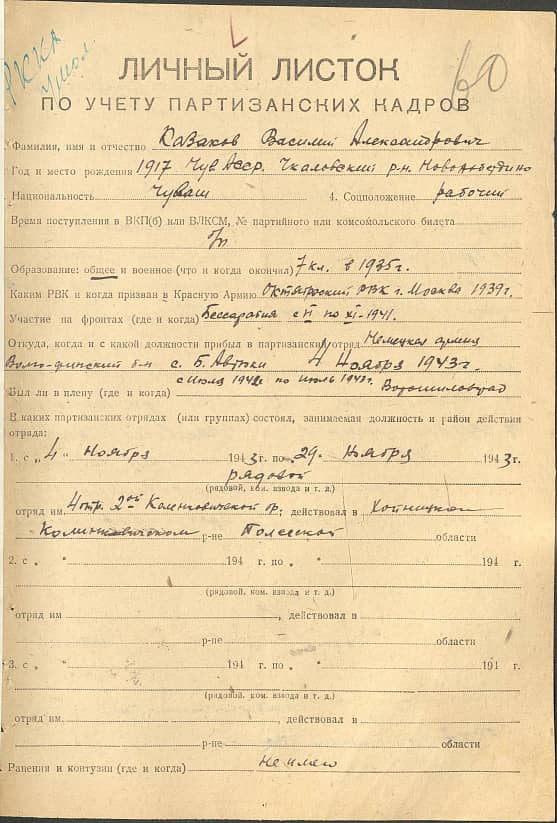 РККА
60
ЛИЧНЫЙ ЛИСТОК
ПО УЧЕТУ ПАРТИЗАНСКИХ КАДРОВ
Фамилия, имя и отчество Казаков Василий Александрович
Год и место рождения 1917 Чув АССР. Чкаловский р-н.
Национальность Чуваш 4. Соцположение рабочий
Время поступления в ВКП(б) или ВЛКСМ, № партийного или комсомольского билета
б/п
Образование: общее и военное (что и когда окончил) 7 кл. в 1935 г.
Каким РВК и когда призван в Красную Армию Октябрьский РВК г. Москва 1939 г.
Участие на фронтах (где и когда) Бессарабия с VI по XI-1941.
Откуда, когда и с какой должности прибыл в партизанский отряд Немецкая армия
Волго-финский б-н с. Б. Автюки 4 Ноября 1943 г.
Был ли в плену (где и когда) с Июля 1942г по июль 1943 г. Ворошиловград
В каких партизанских отрядах (или группах) состоял, занимаемая должность и район действия
отряда:
1. с „ 4 " Ноября 1943 г. по „ 29. Ноября 1943 г.
рядовой
(рядовой, ком. взвода и т. д.)
отряд им 4 отр. 2ой Калинковичской бр.; действовал в Хойницком
Калинковичском р-не Полесской области
2. с „ " 194 г. по „ " 194 г.
(рядовой, ком. взвода и т. д.)
отряд им , действовал в
р-не области
3. с „ " 194 г. по „ " 194 г.
(рядовой, ком. взвода и т. д.)
отряд им. , действовал в
р-не области
Ранения и контузии (где и когда) Не имею